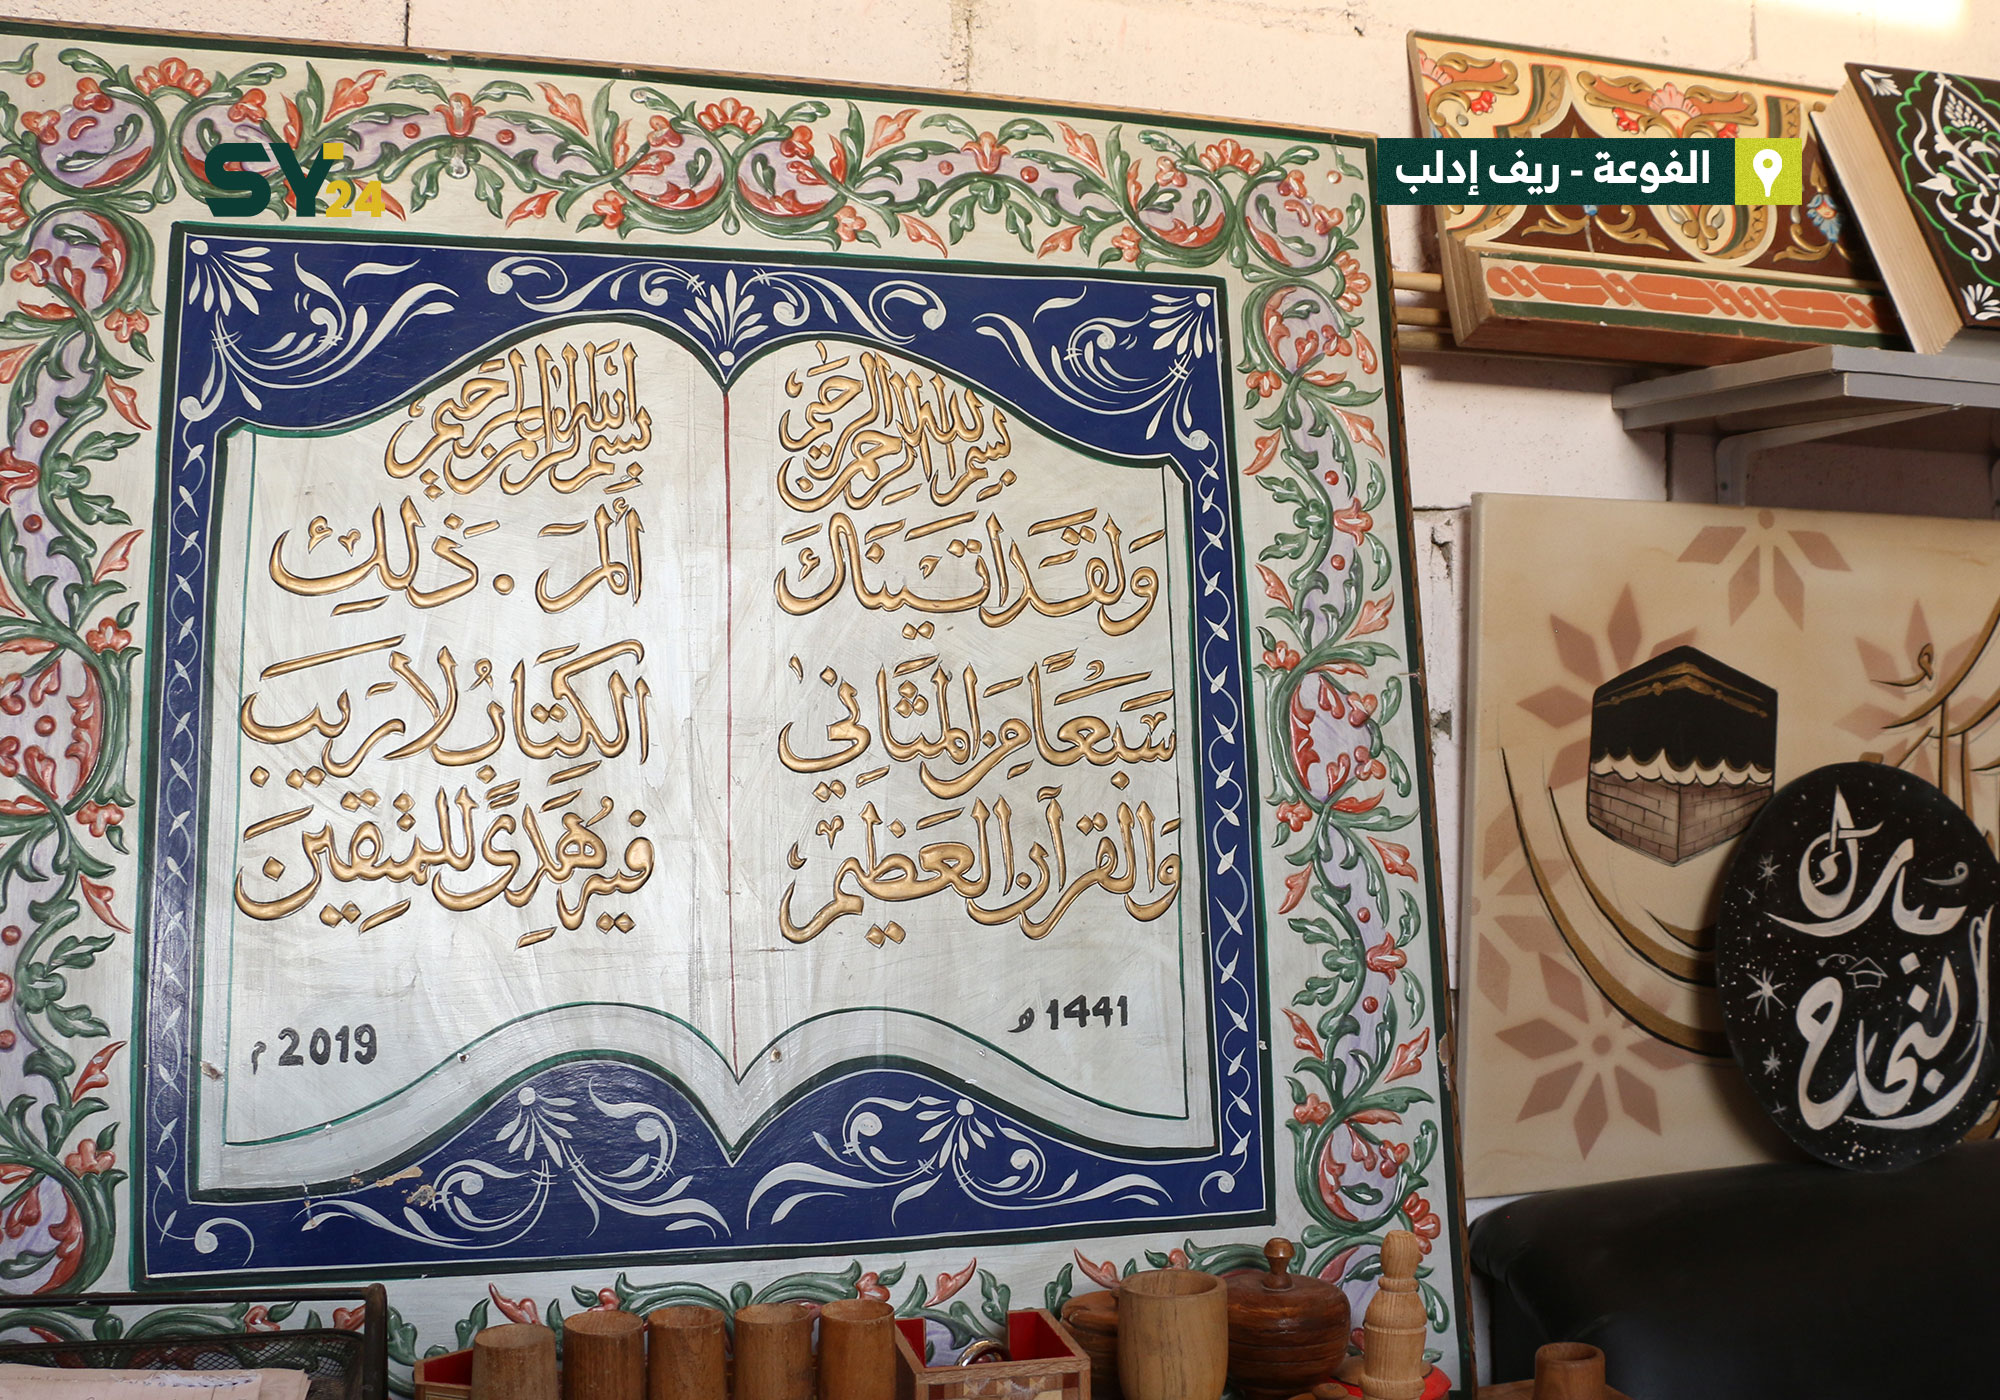 SY24
الفوعة - ريف إدلب
بسم الله الرحمن الرحيم
وَلقَد اتَينَاك
سَبعًا مِّنَ المثَاني
وَالقرآن العَظيم
1441 هـ
بسم الله الرحمن الرحيم
ألمَ . ذَلِك
الكِتَابُ لا رَيبَ
فيهِ هُدىً للمتقِينَ
2019 م
مُبارك
النجاح